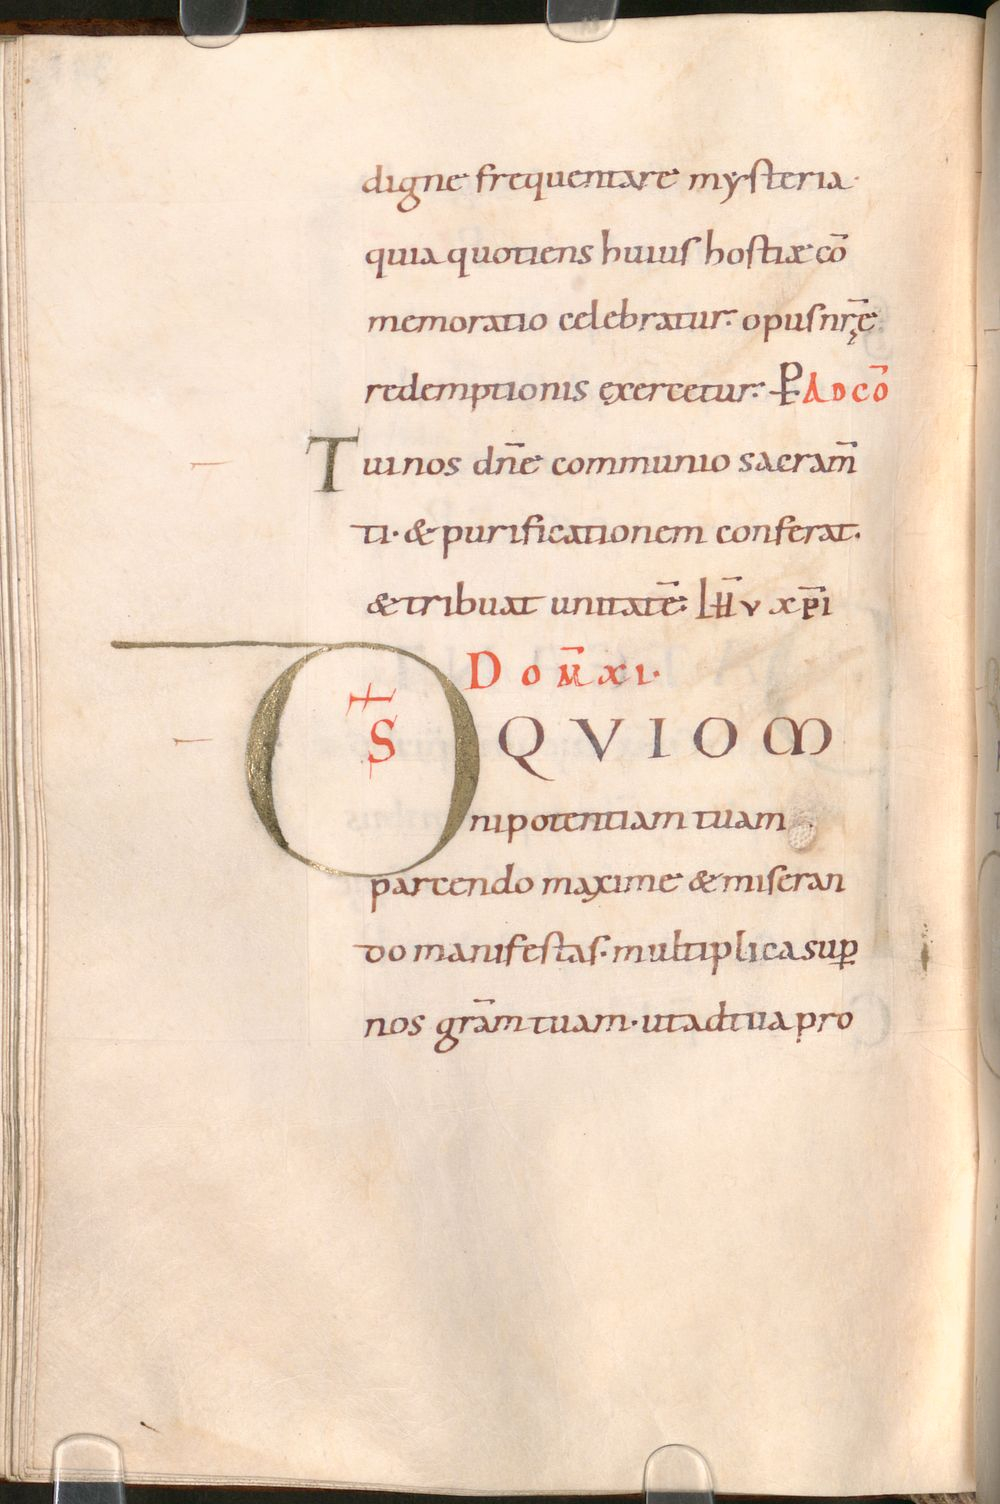 digne frequentare mysteria·
quia quotiens huius hostiæ cō
memoratio celebratur· opus nr̄ę
redemptionis exercetur· P̵ AD CŌ
Tui nos dn̄e communio sacram̄
ti· & purificationem conferat·
& tribuat unitatē· xp̄i
DOM̄ XI·
DS QVI OM
nipotentiam tuam
parcendo maxime & miseran
do manifestas· multiplica suꝑ
nos grām tuam· ut ad tua pro